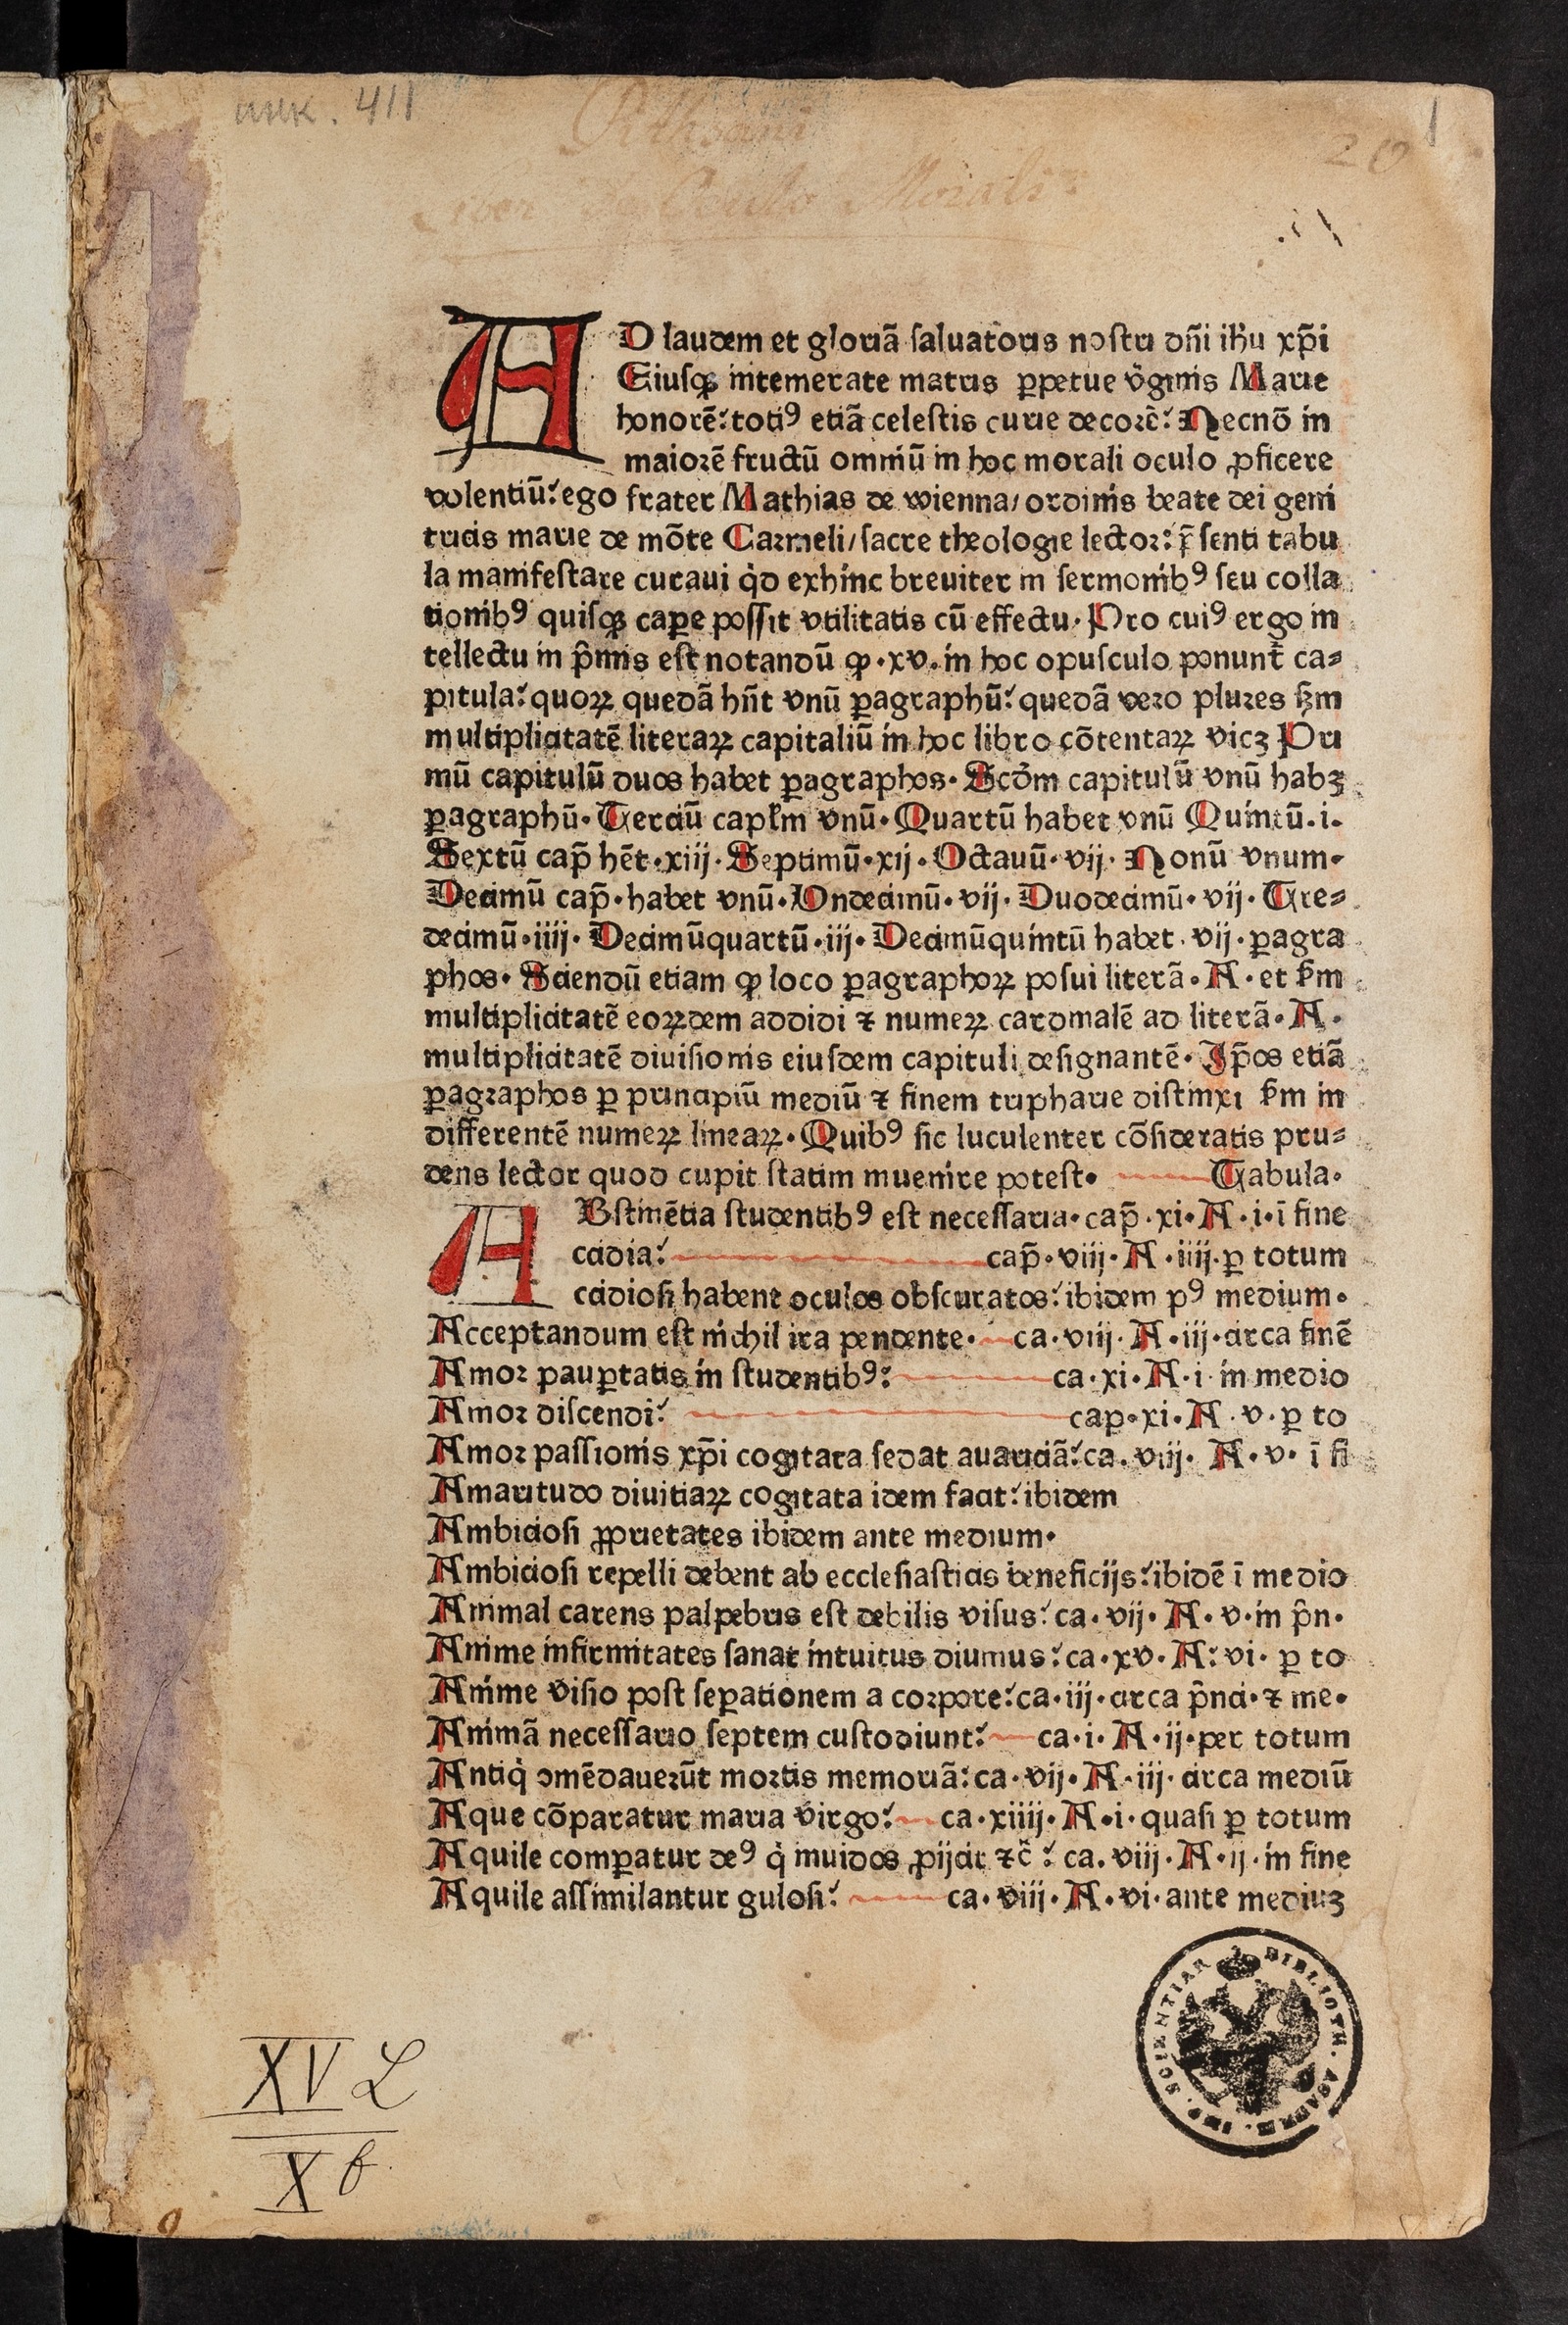 инк. 411
1
20
Liber de Oculo Morali
AD laudem et gloriā saluatoris nostri dñi ihu xp̄i
Eiusqꝫ intemerate matris ꝑpetue v̾ginis Marie
honorē: totiꝰ etiā celestis curie decorē: Necnō in
maiorē fructū omniū in hoc morali oculo ꝓficere
volentiū: ego frater Mathias de wienna/ ordinis beate dei geni
tricis marie de mōte Carmeli/ sacre theologie lector: p̄senti tabu
la manifestare curaui qd̓ exhinc breuiter in sermonibꝰ seu colla
tionibꝰ quisqꝫ capere possit vtilitatis cū effectu· Pro cuiꝰ ergo in
tellectu in p̄mis est notandū ꝙ·xv·in hoc opusculo ponunt̄ ca⸗
pitula: quoꝝ quedā hn̄t vnū ꝑagraphū: quedā vero plures ẜm
multiplicitatē literaꝝ capitaliū in hoc libro cōtentaꝝ vicꝫ Pri
mū capitulū duos habet ꝑagraphos· Scd̓m capitulū vnū habꝫ
ꝑagraphū· Terciū capl̓m vnū· Quartū habet vnū Quintū·i·
Sextū cap̄ hēt·xiij· Septimū·xij· Octauū·vij· Nonū vnum·
Decimū cap̄·habet vnū· Vndecimū·vij· Duodecimū·vij· Tre⸗
decimū·iiij· Decimūquartū·iij· Decimūquintū habet·vij·ꝑagra
phos· Sciendū etiam ꝙ loco ꝑagraphoꝝ posui literā·A·et ẜm
multiplicitatē eoꝝdem addidi ⁊ numeꝝ cardinalē ad literā·A·
multiplicitatē diuisionis eiusdem capituli designantē· Ip̄os etiā
ꝑagraphos ꝑ principiū mediū ⁊ finem tripharie distinxi ẜm in
differentē numeꝝ lineaꝝ· Quibꝰ sic luculenter cōsideratis pru⸗
dens lector quod cupit statim inuenire potest· Tabula·
ABstinētia studentibꝰ est necessaria·cap̄·xi·A·i·ī fine
ccidia: cap̄·viij·A·iiij·ꝑ totum
ccidiosi habent oculos obscuratos: ibidem pꝰ medium·
Acceptandum est nichil ira pendente· ca·viij·A·iij·circa finē
Amor pauꝑtatis in studentibꝰ: ca·xi·A·i·in medio
Amor discendi: cap·xi·A·v·ꝑ to
Amor passionis xp̄i cogitata sedat auariciā: ca·viij·A·v·ī fi
Amaritudo diuitiaꝝ cogitata idem facit: ibidem
Ambiciosi ꝓprietates ibidem ante medium·
Ambiciosi repelli debent ab ecclesiasticis beneficijs: ibidē ī medio
Animal carens palpebris est debilis visus: ca·vij·A·v·in p̄n·
Anime infirmitates sanat intuitus diuinus: ca·xv·A: vi·ꝑ to
Anime visio post seꝑationem a corpore: ca·iij·circa p̄nci·⁊ me·
Animā necessario septem custodiunt: ca·i·A·ij·per totum
Antiq̇ ↄmēdauerūt mortis memoriā: ca·vij·A·iij·circa mediū
Aque cōparatur maria virgo: ca·xiiij·A·i·quasi ꝑ totum
Aquile comꝑatur deꝰ q̇ inuidos ꝓijcit ⁊c̄: ca·viij·A·ij·in fine
Aquile assimilantur gulosi: ca·viij·A·vi·ante mediuꝫ
BIBLIOTH. ACADEM. IMP. SCIENTIAR
XV L
X b